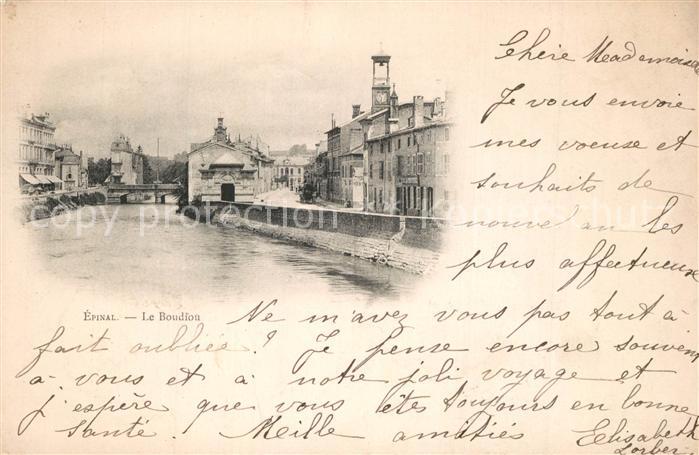 Chère Meademoiselle
Je vous envoie
mes voeuse et
souhaits de
nouvel an les
plus affectueuse
ÉPINAL. — Le Boudiou
Ne m'avez vous pas tout à
fait oubliée? Je pense encore souvent
à vous et à notre joli voyage et
j'espère que vous êtes toujours en bonne
santé. Meille amitiés Elisabeth
Lorber
copyright pokecshop.com